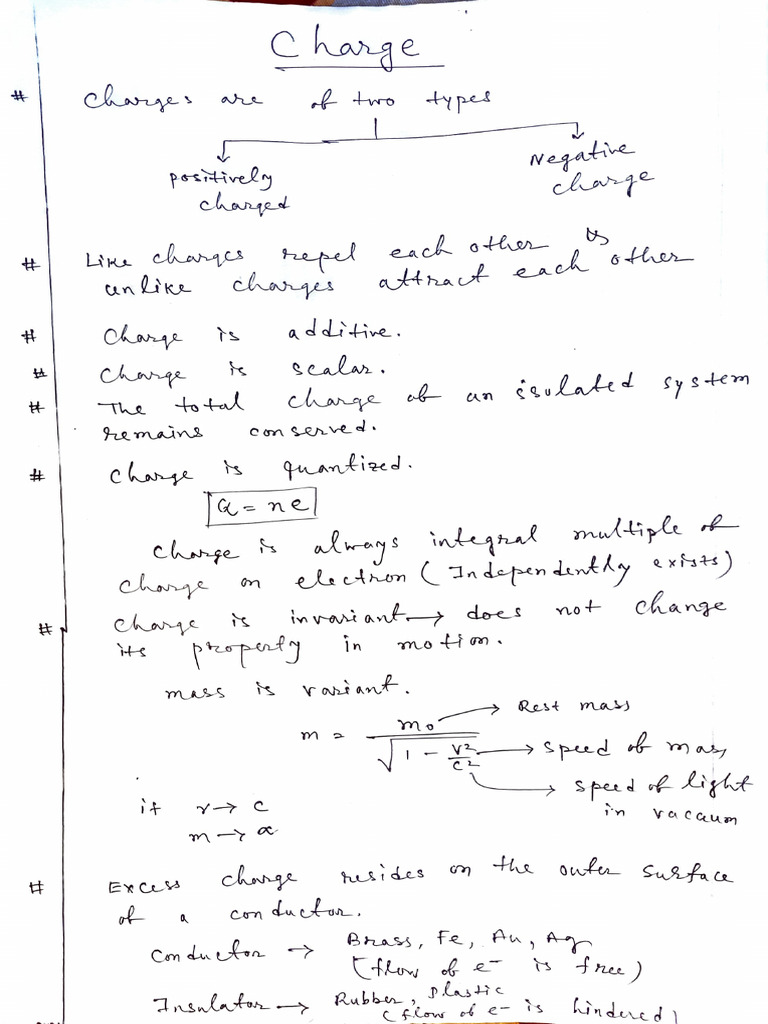 Charge
# Charges are of two types
positively charged
Negative charge
# Like charges repel each other &
unlike charges attract each other
# Charge is additive.
# Charge is scalar.
# The total charge of an isulated system
remains conserved.
# Charge is quantized.
Q = ne
Charge is always integral multiple of
charge on electron (Independently exists)
# Charge is invariant → does not change
its property in motion.
mass is variant.
m = m₀ / √(1 - v²/c²)
→ Rest mass
→ speed of mass
→ speed of light
in vacaum
if v → c
m → ∝
# Excess charge resides on the outer surface
of a conductor.
Conductor → Brass, Fe, Au, Ag
(flow of e⁻ is free)
Insulator → Rubber, plastic
(flow of e⁻ is hindered)